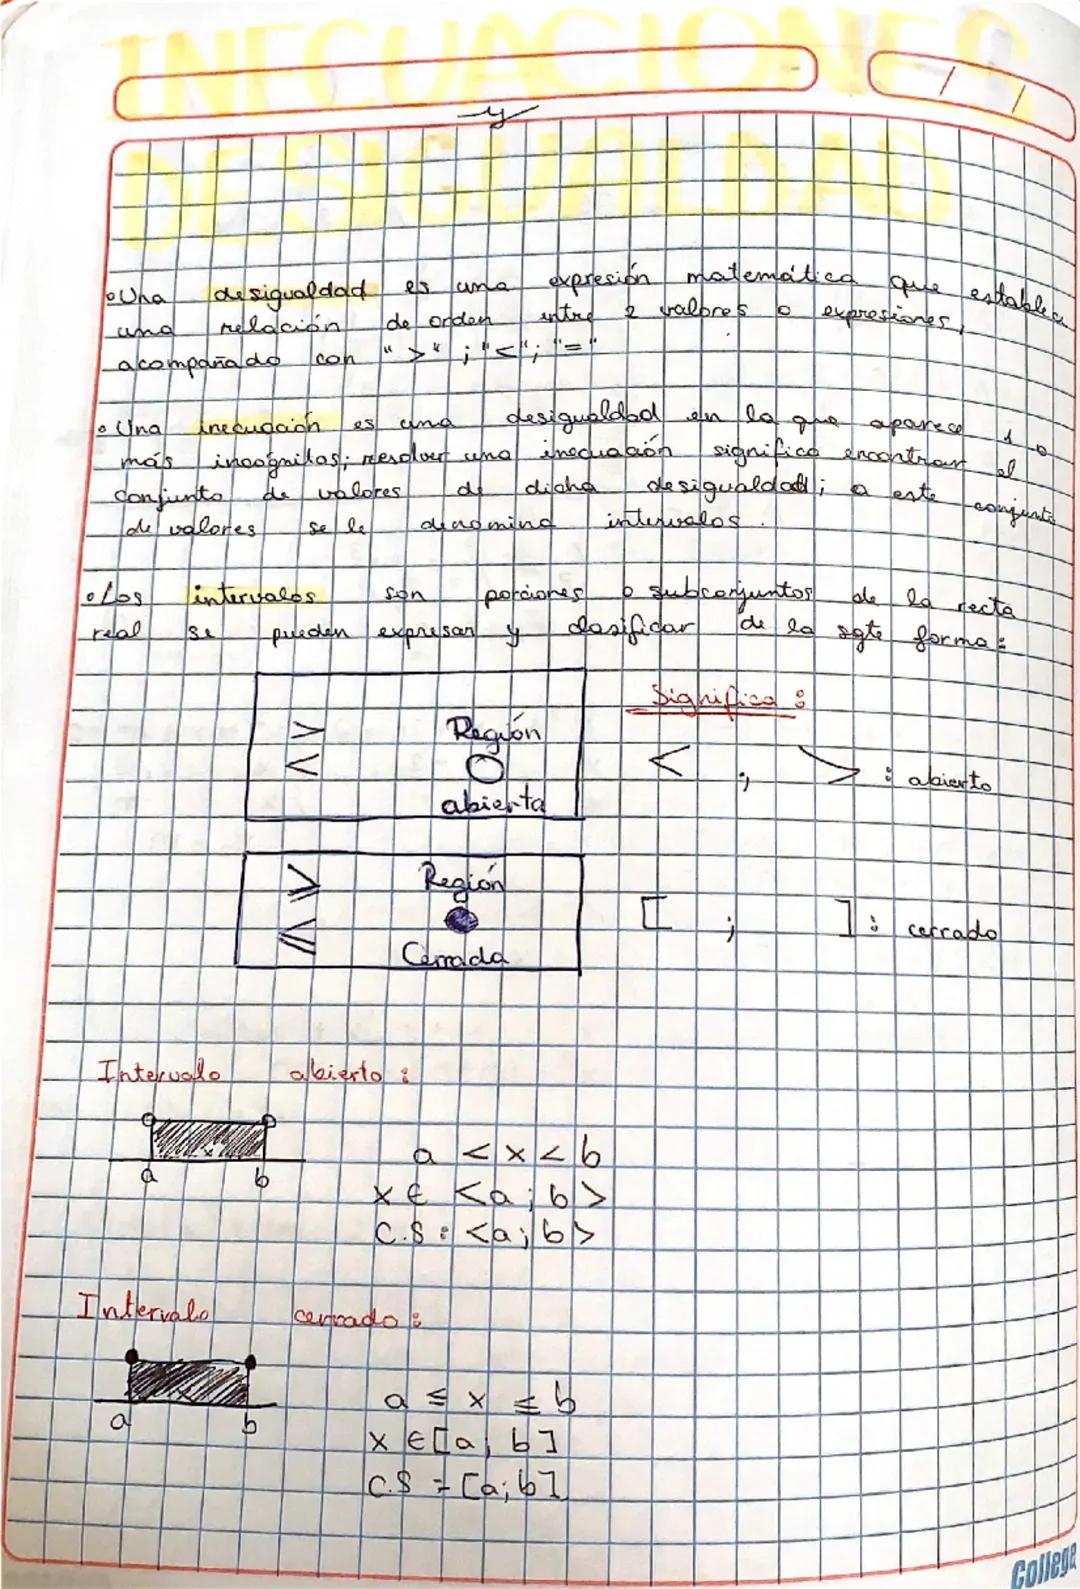 INECUACIONES
y
DESIGUALDAD
• Una desigualdad es una expresión matemática que establece
una relación de orden entre 2 valores o expresiones,
acompañado con ">" ; "<" ; "="
• Una inecuación es una desigualdad en la que aparece 1 o
más incógnitas; resolver una inecuación significa encontrar el
conjunto de valores de dicha desigualdad; a este conjunto
de valores se le denomina intervalos.
• Los intervalos son porciones o subconjuntos de la recta
real se pueden expresar y clasificar de la sgte forma:
Significa:
> Región
<
abierta
< ; > : abierto
≥ Región
≤
Cerrada
[ ; ] : cerrado
Intervalo abierto:
x
a b
a < x < b
x ∈ <a ; b>
C.S : <a ; b>
Intervalo cerrado:
x
a b
a ≤ x ≤ b
x ∈ [a ; b]
C.S = [a ; b]
College